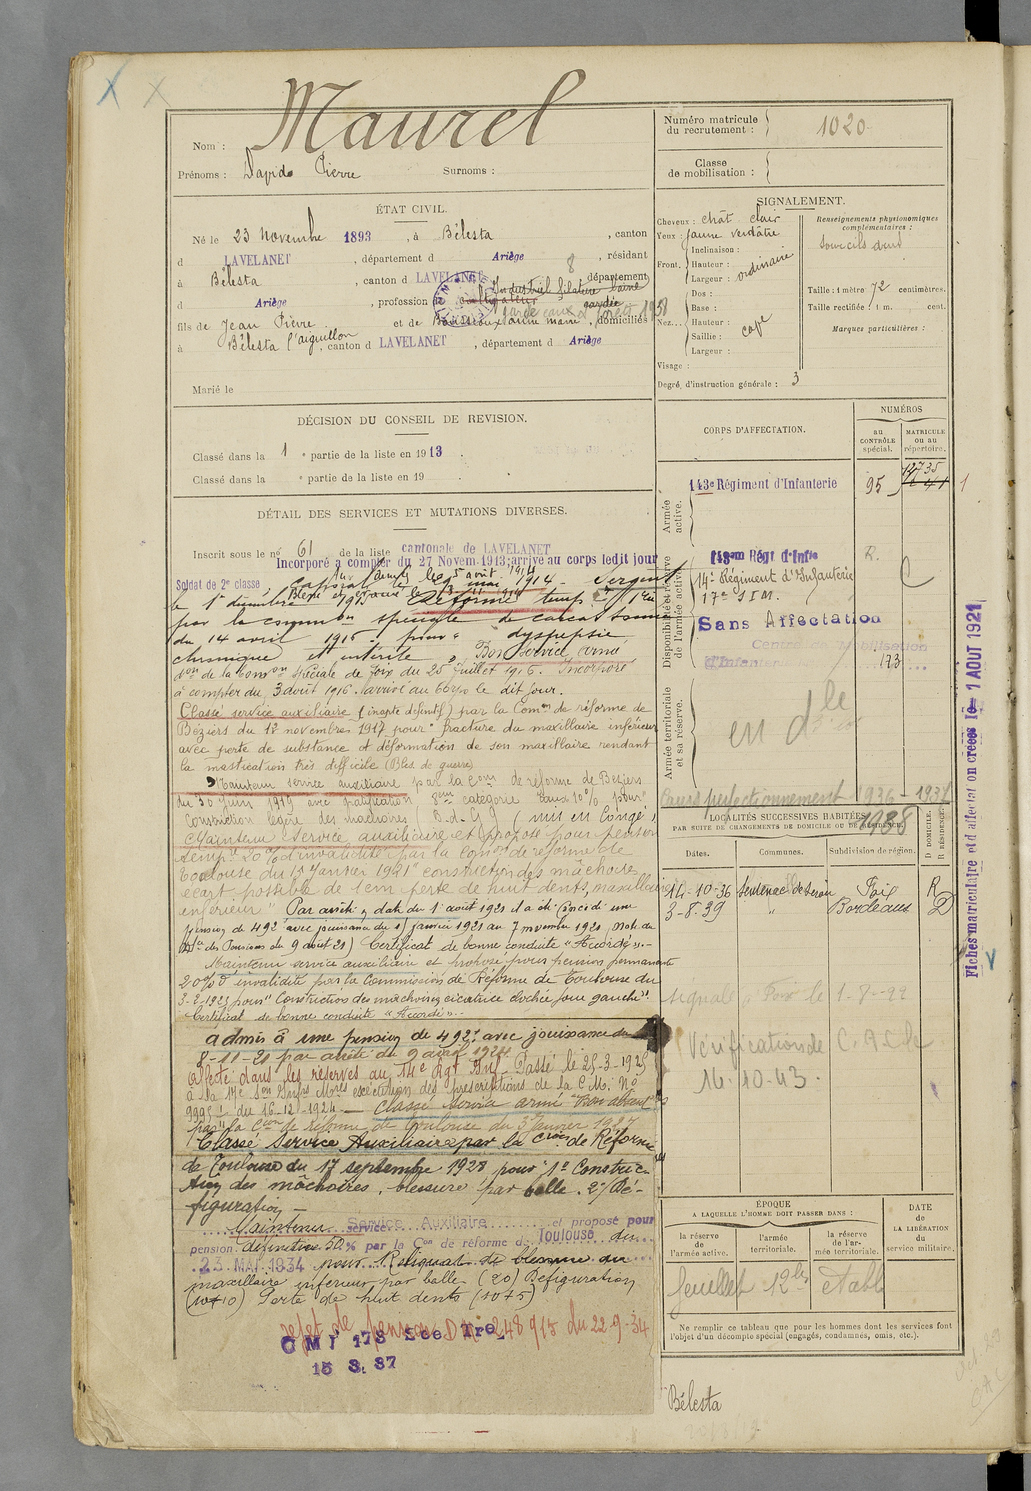 Maurel
Nom :
Prénoms : Pierre Surnoms :
ÉTAT CIVIL.
Né le 23 Novembre 1893, à Bélesta, canton
d LAVELANET, département d Ariège, résidant
à Bélesta, canton d LAVELANET département
d Ariège, profession cultivateur
Industriel filature laine
garde eaux
fils de Jean Pierre et de Marie, domiciliés
à Bélesta l'aiguillon, canton d LAVELANET, département d Ariège
Marié le
DÉCISION DU CONSEIL DE REVISION.
Classé dans la 1 e partie de la liste en 1913.
Classé dans la e partie de la liste en 19 .
DÉTAIL DES SERVICES ET MUTATIONS DIVERSES.
Inscrit sous le n° 61 de la liste cantonale de LAVELANET
Incorporé à compter du 27 Novem. 1913; arrivé au corps ledit jour
Soldat de 2e classe
Caporal le 5 août 1914 Sergent
le 1er décembre 1915 Réformé temp.
par la commion spéciale de Carcassonne
du 14 avril 1916 pour dyspepsie
chronique et entérite. Bon service armé
don de la Comon Spéciale de Foix du 25 Juillet 1916. Incorporé
à compter du 3 août 1916. Arrivé au Corps le dit jour.
Classé service auxiliaire (inapte définitif) par la Comon de réforme de
Béziers du 12 novembre 1917 pour "fracture du maxillaire inférieur
avec perte de substance et déformation de son maxillaire rendant
la mastication très difficile (Bles. de guerre)
Maintenu service auxiliaire par la Con de réforme de Béziers
du 30 Juin 1919 avec gratification 8me catégorie taux 10% pour
Constriction légère des machoires (mis en congé)
Maintenu Service auxiliaire et proposé pour pension
temp. 20% d'invalidité par la Comon de réforme de
Toulouse du 11 Janvier 1921 "constriction des mâchoires
écart possible de 1cm perte de huit dents, maxillaire
inférieur" Par arrêté en date du 1er août 1921 il a été Concédé une
pension de 492f avec jouissance du 11 janvier 1921 au 7 novembre 1921
des Pensions du 9 août 21) Certificat de bonne conduite "Accordé"..
Maintenu service auxiliaire et proposé pour pension permanente
20% d'invalidité par la Commission de Réforme de Toulouse du
3-2-1923 pour "Constriction des machoires cicatrice joue gauche".
Certificat de bonne conduite "Accordé"..
admis à une pension de 492f avec jouissance du
8-11-21 par arrêté du 9 avril 1924
Affecté dans les réserves au 14e Rgt Inf. Passé le 25-3-1925
à la 17e Son Infres Mres exécution des prescriptions de la C.M. N°
du 16-12-1924. — Classé Service armé
par la Con de réforme de Toulouse du 3 Janvier 1927
Classé Service Auxiliaire par la Con de Réforme
de Toulouse du 17 septembre 1928 pour "1° Constric-
tion des mâchoires, blessure par balle. 2°/ Dé-
figuration —
Maintenu Service Auxiliaire et proposé pour
pension définitive 50% par la Con de réforme de Toulouse du
23 MAI 1934 pour Reliquat de blessure du
maxillaire inférieur par balle (20) Défiguration
(10) Perte de huit dents (10+5)
rejet de pension D.M. 248915 du 22-9-34
C M I 173 Sec. Tre
15 3. 37
Numéro matricule
du recrutement : 1020
Classe
de mobilisation :
SIGNALEMENT.
Cheveux : chât clair
Yeux : jaune verdâtre
Front, Inclinaison :
Hauteur : ordinaire
Largeur :
Nez... Dos :
Base :
Hauteur : cave
Saillie :
Largeur :
Visage :
Degré d'instruction générale : 3
Renseignements physionomiques
complémentaires :
Sourcils
Taille : 1 mètre 72 centimètres.
Taille rectifiée : 1 m. cent.
Marques particulières :
CORPS D'AFFECTATION.
NUMÉROS
au
CONTRÔLE
spécial.
MATRICULE
ou au
répertoire.
Armée
active.
143e Régiment d'Infanterie 95
Disponibilité et réserve
de l'armée active.
14e Régiment d'Infanterie
17e S I M.
Sans Affectation
Centre de Mobilisation
d'Infanterie 173
Armée territoriale
et sa réserve.
en dle
Cours perfectionnement 1936 - 1937
1938
LOCALITÉS SUCCESSIVES HABITÉES
PAR SUITE DE CHANGEMENTS DE DOMICILE OU DE RÉSIDENCE.
Dates. Communes. Subdivision de région. D DOMICILE. R RÉSIDENCE.
24-10-36 Sentenac de Sérou Foix R
3-8.39 " Bordeaux D
Signalé à Foix le 1-8-42
Vérification de C.A.Ch
14.10.43.
ÉPOQUE
A LAQUELLE L'HOMME DOIT PASSER DANS :
la réserve
de
l'armée active.
l'armée
territoriale.
la réserve
de l'ar-
mée territoriale.
DATE
de
LA LIBÉRATION
du
service militaire.
feuillet 12bis établi
Ne remplir ce tableau que pour les hommes dont les services font
l'objet d'un décompte spécial (engagés, condamnés, omis, etc.).
Bélesta
Fiches matriculaire et d'affectation créées le 1 AOUT 1921